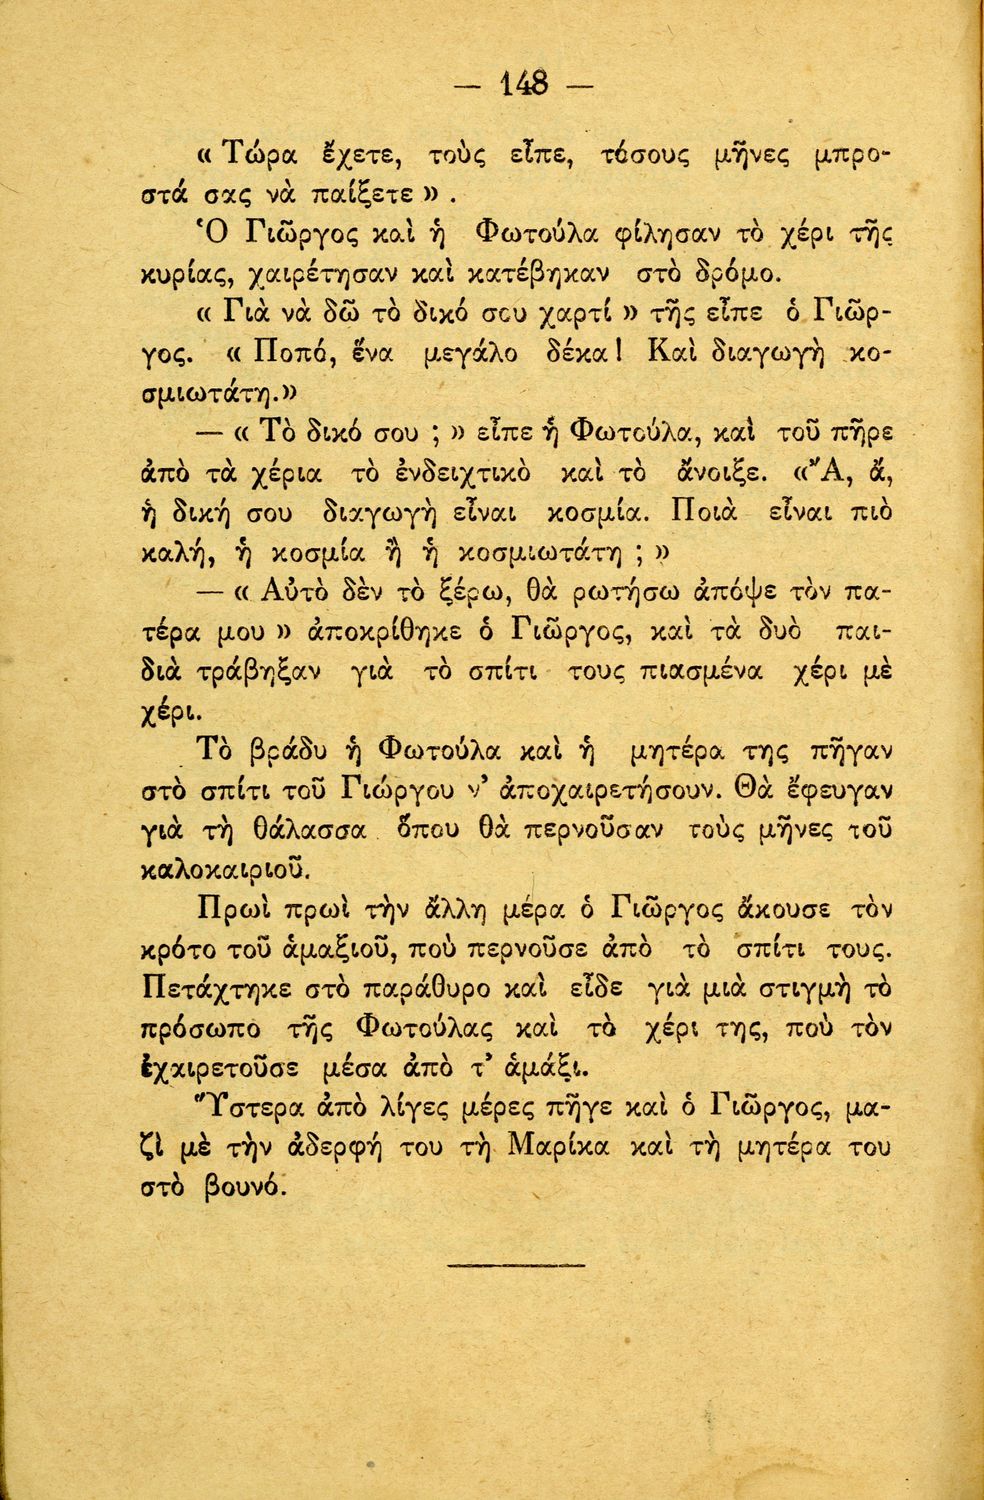 — 148 —
« Τώρα ἔχετε, τοὺς εἶπε, τόσους μῆνες μπρο-
στά σας νὰ παίξετε » .
Ὁ Γιῶργος καὶ ἡ Φωτούλα φίλησαν τὸ χέρι τῆς
κυρίας, χαιρέτησαν καὶ κατέβηκαν στὸ δρόμο.
« Γιὰ νὰ δῶ τὸ δικό σου χαρτί » τῆς εἶπε ὁ Γιῶρ-
γος. « Ποπό, ἕνα μεγάλο δέκα! Καὶ διαγωγὴ κο-
σμιωτάτη.»
— « Τὸ δικό σου ; » εἶπε ἡ Φωτούλα, καὶ τοῦ πῆρε
ἀπὸ τὰ χέρια τὸ ἐνδειχτικὸ καὶ τὸ ἄνοιξε. «Ἄ, ἄ,
ἡ δική σου διαγωγὴ εἶναι κοσμία. Ποιὰ εἶναι πιὸ
καλή, ἡ κοσμία ἢ ἡ κοσμιωτάτη ; »
— « Αὐτὸ δὲν τὸ ξέρω, θὰ ρωτήσω ἀπόψε τὸν πα-
τέρα μου » ἀποκρίθηκε ὁ Γιῶργος, καὶ τὰ δυὸ παι-
διὰ τράβηξαν γιὰ τὸ σπίτι τους πιασμένα χέρι μὲ
χέρι.
Τὸ βράδυ ἡ Φωτούλα καὶ ἡ μητέρα της πῆγαν
στὸ σπίτι τοῦ Γιώργου ν’ ἀποχαιρετήσουν. Θὰ ἔφευγαν
γιὰ τὴ θάλασσα ὅπου θὰ περνοῦσαν τοὺς μῆνες τοῦ
καλοκαιριοῦ.
Πρωὶ πρωὶ τὴν ἄλλη μέρα ὁ Γιῶργος ἄκουσε τὸν
κρότο τοῦ ἁμαξιοῦ, ποὺ περνοῦσε ἀπὸ τὸ σπίτι τους.
Πετάχτηκε στὸ παράθυρο καὶ εἶδε γιὰ μιὰ στιγμὴ τὸ
πρόσωπο τῆς Φωτούλας καὶ τὸ χέρι της, ποὺ τὸν
ἐχαιρετοῦσε μέσα ἀπὸ τ’ ἁμάξι.
Ὕστερα ἀπὸ λίγες μέρες πῆγε καὶ ὁ Γιῶργος, μα-
ζὶ μὲ τὴν ἀδερφή του τὴ Μαρίκα καὶ τὴ μητέρα του
στὸ βουνό.